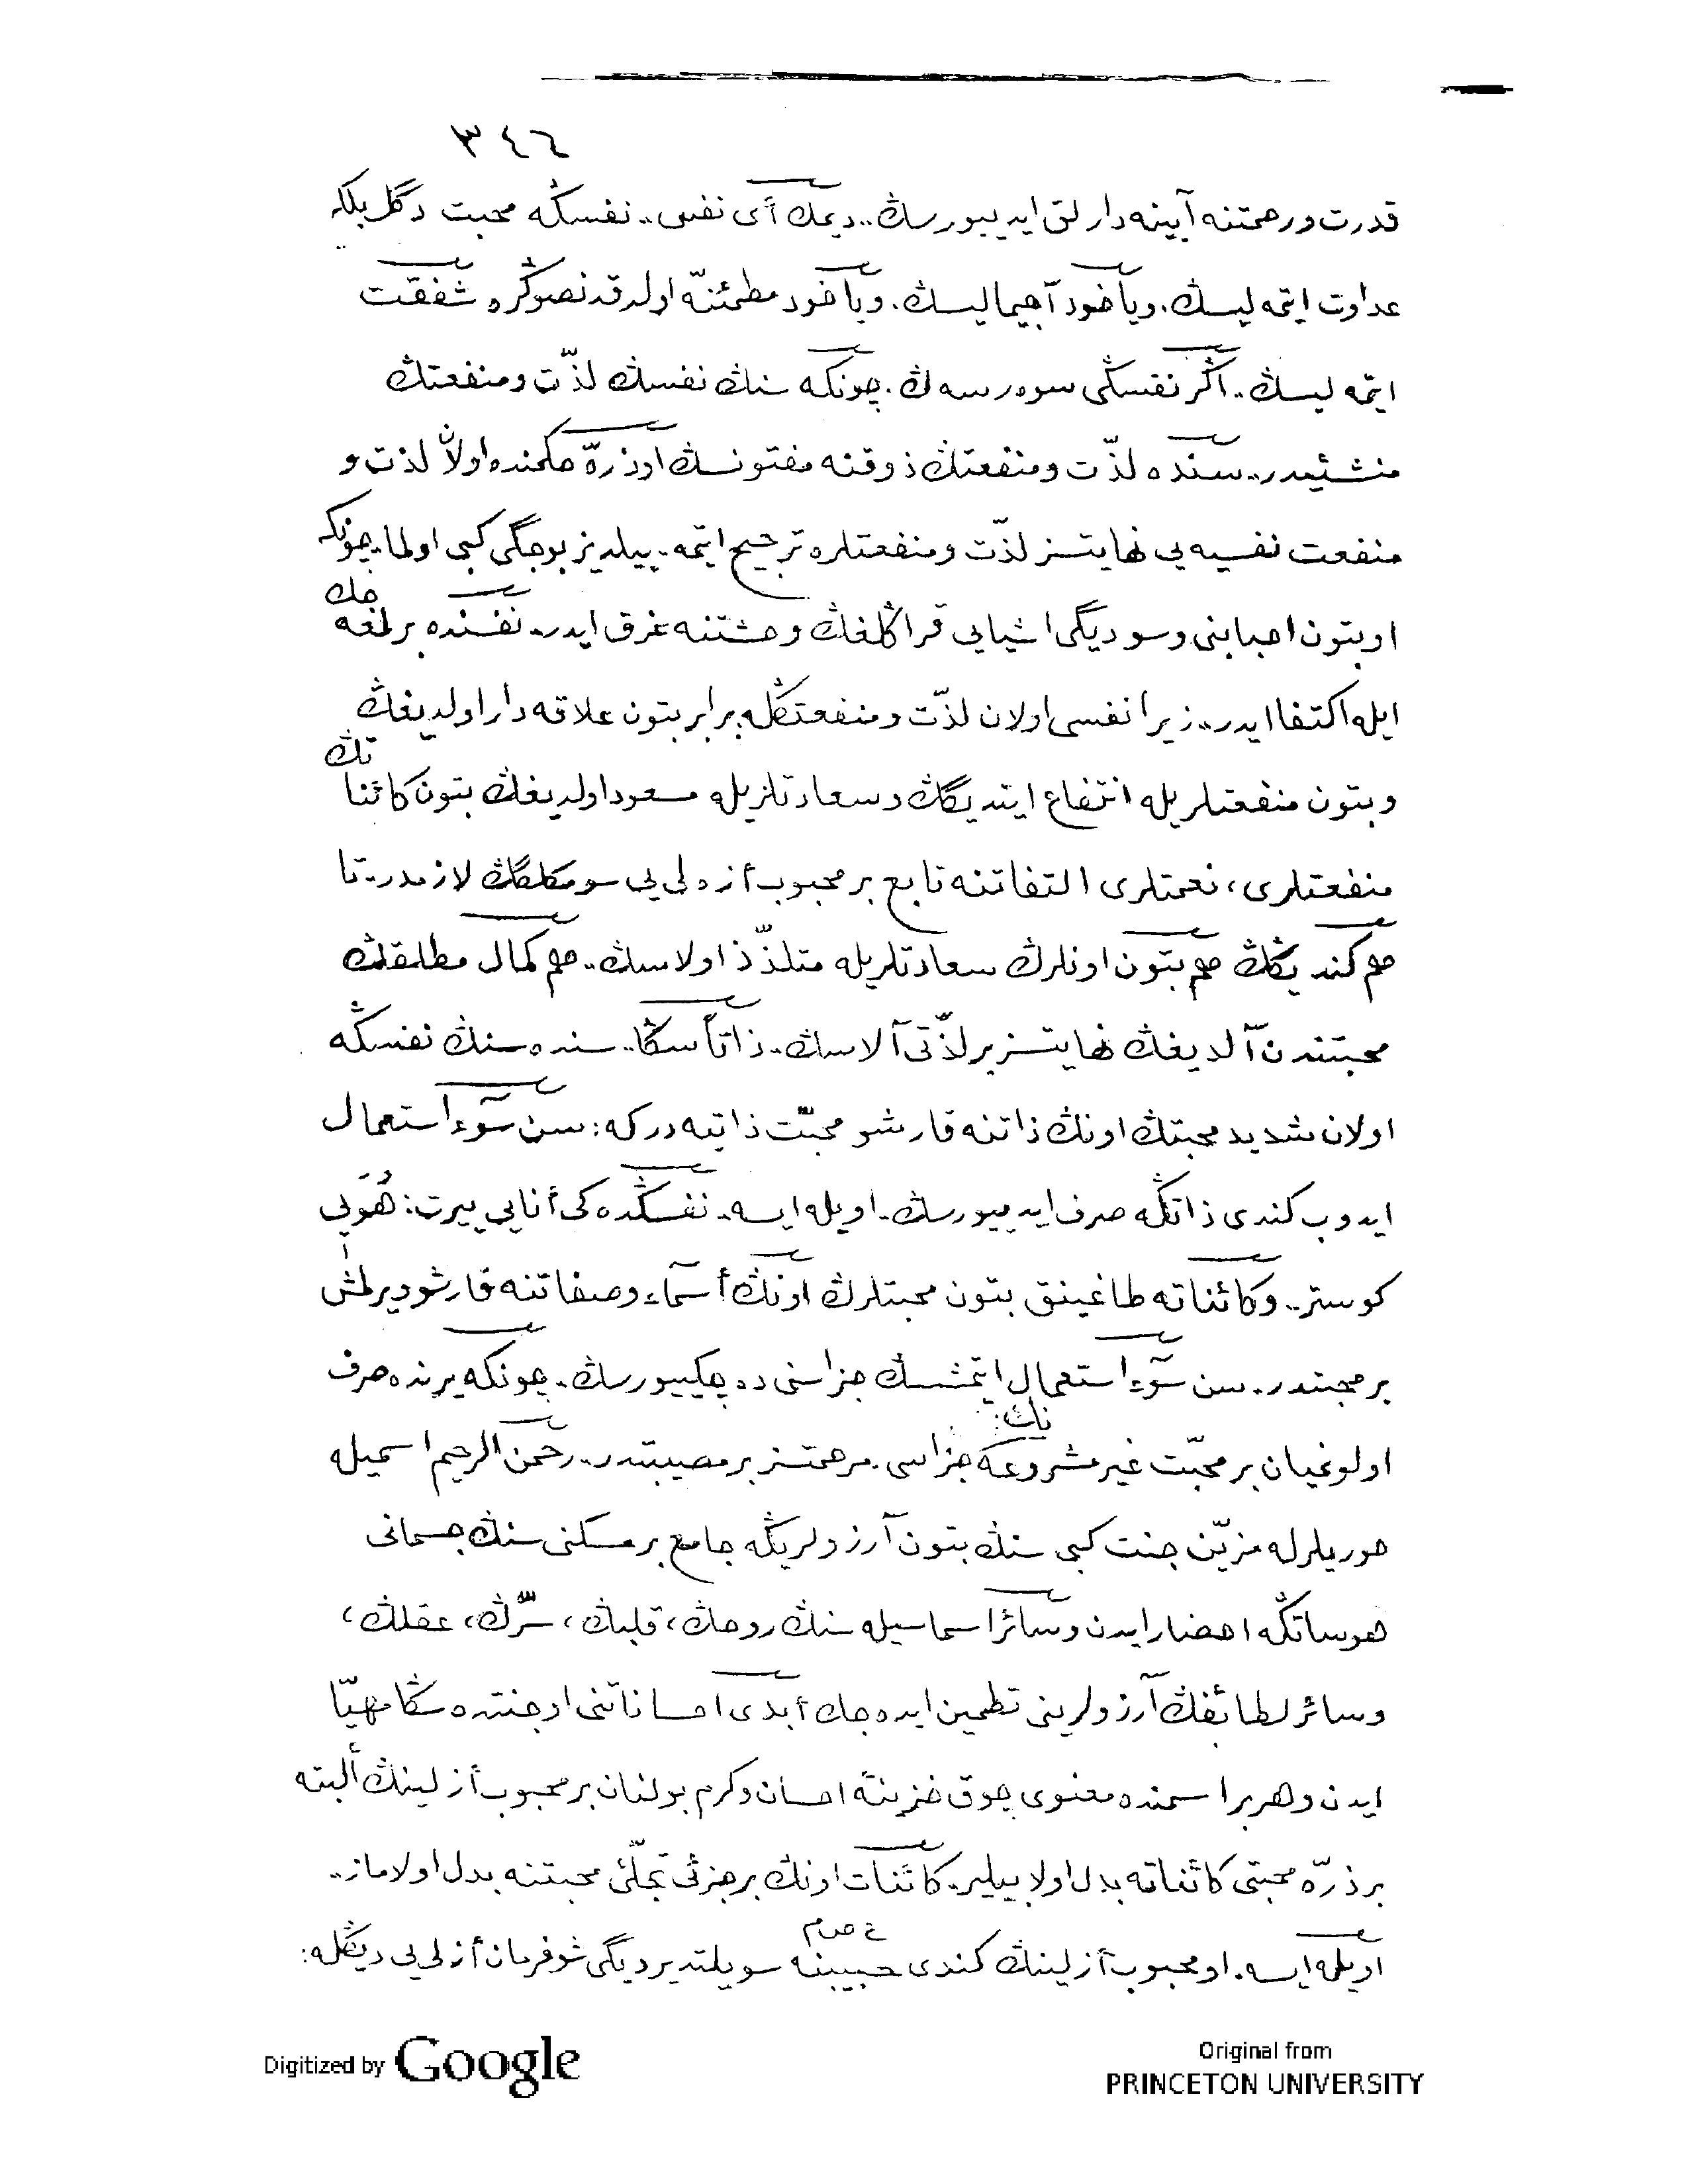 ٣٤٦
قدرت ورحمتنه آيينه دارلق ايدييورسڭ.. ديمك أى نفس.. نفسڭه محبت دگل بلكه
عداوت ايتمه ليسڭ. وياخود آجيماليسڭ. وياخود مطمئنّه اولدقدنصوڭره شفقت
ايتمه ليسڭ.. اگر نفسڭى سوه رسه ڭ. چونكه سنڭ نفسڭ لذّت ومنفعتڭ
منشئيدر.. سنده لذّت ومنفعتڭ ذوقنه مفتونسڭ او ذرّه حكمنده اولان لذت و
منفعت نفسيه يى نهايتسز لذّت ومنفعتلره ترجيح ايتمه.. ييلديز بوجگى كبى اولما. چونكه
او بتون احبابنى وسوديگى اشيايى قراڭلغڭ وحشتنه غرق ايدر.. نفسنده بر لمعه جك
ايله اكتفا ايدر.. زيرا نفسى اولان لذّت ومنفعتڭله برابر بتون علاقه دار اولديغڭ
وبتون منفعتلريله انتفاع ايتديگڭ وسعادتلريله مسعود اولديغڭ بتون كائناتڭ
منفعتلرى، نعمتلرى التفاتنه تابع بر محبوب أزه لى يى سومكلگڭ لازمدر.. تا
هم كنديڭڭ هم بتون اونلرڭ سعادتلريله متلذّذ اولاسڭ.. هم كمال مطلقڭ
محبتندن آلديغڭ نهايتسز بر لذّتى آلاسڭ.. ذاتاً سڭا.. سنده سنڭ نفسڭه
اولان شديد محبتڭ اونڭ ذاتنه قارشو محبّت ذاتيه در كه: سن سوٓء استعمال
ايدوب كندى ذاتڭه صرف ايدييورسڭ.. اويله ايسه.. نفسڭده كى أنايى ييرت: هُوَيى
كوستر.. وكائناته طاغينق بتون محبتلرڭ اونڭ أسمآء وصفاتنه قارشو ويرلمش
بر محبتدر.. سن سوٓء استعمال ايتمشسڭ جزاسنى ده چكييورسڭ.. چونكه يرنده صرف
اولونميان بر محبّت غير مشروعه نڭ جزاسى. مرحمتسز بر مصيبتدر.. رحمن الرحيم اسميله
حوريلرله مزيّن جنت كبى سنڭ بتون آرزولريڭه جامع بر مسكنى سنڭ جسمانى
هوساتڭه احضار ايدن وسائر اسماسيله سنڭ روحڭ، قلبڭ، سرّڭ، عقلڭ،
وسائر لطائفڭ آرزولرينى تطمين ايده جك أبدى احساناتنى او جنتده سڭا مهيّا
ايدن وهر بر اسمنده معنوى چوق خزينهٔ احسان وكرم بولنان بر محبوب أزلينڭ ألبته
بر ذرّه محبتى كائناته بدل اولا بيلير. كائنات اونڭ بر جزئى تجلّئ محبتنه بدل اولاماز..
اويله ايسه. او محبوب أزلينڭ كندى حبيبنه ع صم سويلتديرديگى شو فرمان أزلى يى ديڭله:
Digitized by Google
Original from
PRINCETON UNIVERSITY